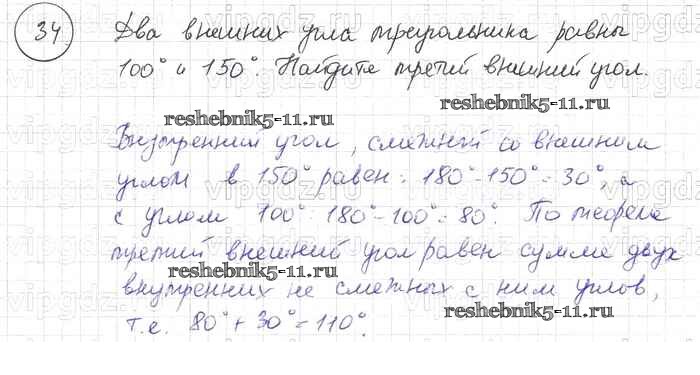 34 Два внешних угла треугольника равны
100° и 150°. Найдите третий внешний угол.
reshebnik5-11.ru
reshebnik5-11.ru
Внутренний угол, смежный со внешним
углом в 150° равен: 180°-150°=30°, а
с углом 100°: 180°-100°=80°. По теореме
третий внешний угол равен сумме двух
reshebnik5-11.ru
внутренних не смежных с ним углов,
reshebnik5-11.ru
т.е. 80°+30°=110°.